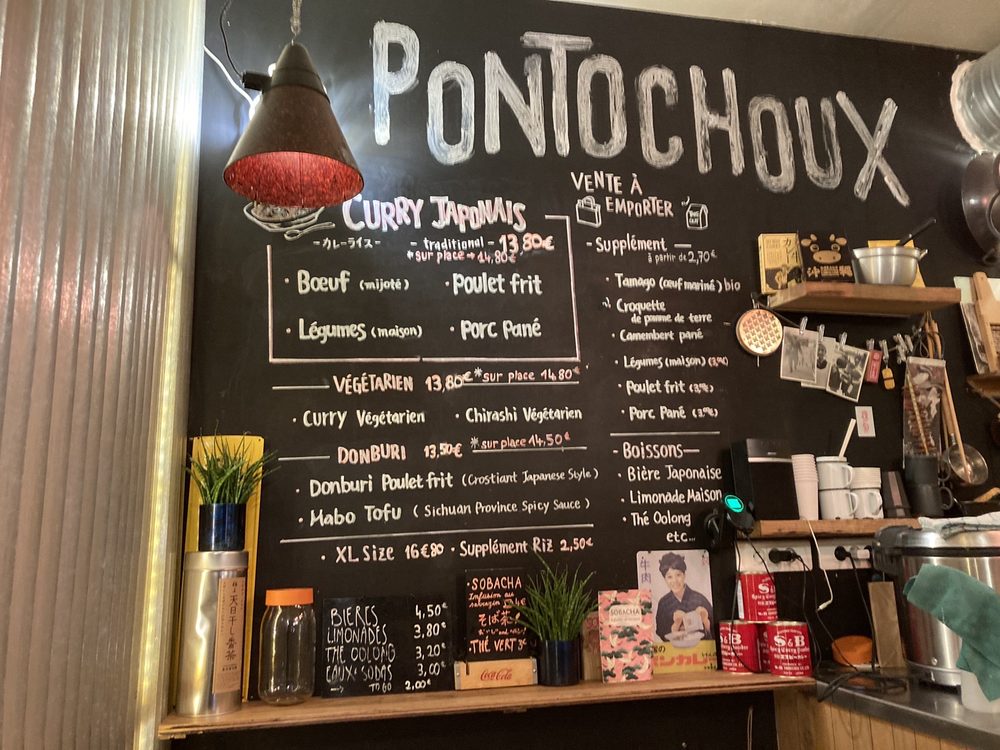 PONTOCHOUX
CURRY JAPONAIS
-カレーライス-
- traditional - 13,80€
*sur place → 14,80€
· Bœuf (mijoté)
· Poulet frit
· Légumes (maison)
· Porc Pané
VÉGÉTARIEN 13,80€ *sur place 14,80€
· Curry Végétarien
· Chirashi Végétarien
DONBURI 13,50€ *sur place 14,50€
· Donburi Poulet frit (Crostiant Japanese Style)
· Mabo Tofu ( Sichuan Province Spicy Sauce )
· XL Size 16€80 · Supplément Riz 2,50€
VENTE À
EMPORTER
- Supplément —
à partir de 2,70€
· Tamago (œuf mariné) bio
· Croquette
de pomme de terre
· Camembert pané
· Légumes (maison)
· Poulet frit
· Porc Pané
- Boissons -
· Bière Japonaise
· Limonade Maison
· Thé Oolong
etc...
BIERES 4,50€
LIMONADES 3,80€
THÉ OOLONG 3,20€
EAUX SODAS 3,00€
→ TO GO 2,00€
·SOBACHA
Infusion au
sarrazin
そば茶
·THÉ VERT 3€
Coca-Cola
SOBACHA
牛肉
S&B
S&B
S&B
天日干し番茶